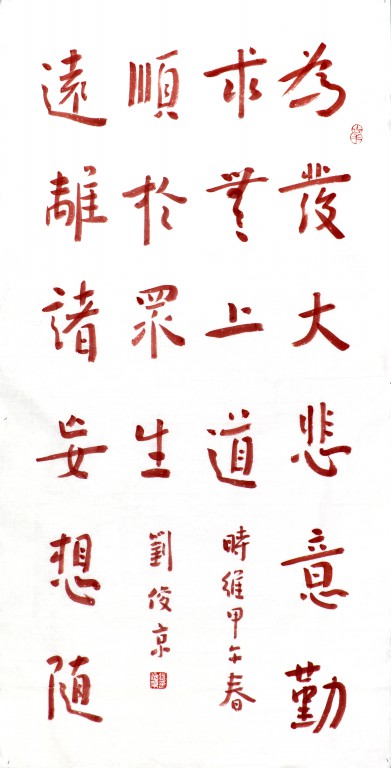 為發大悲意勤
求無上道
時維甲午春
遠離諸妄想随
順於眾生
劉俊京